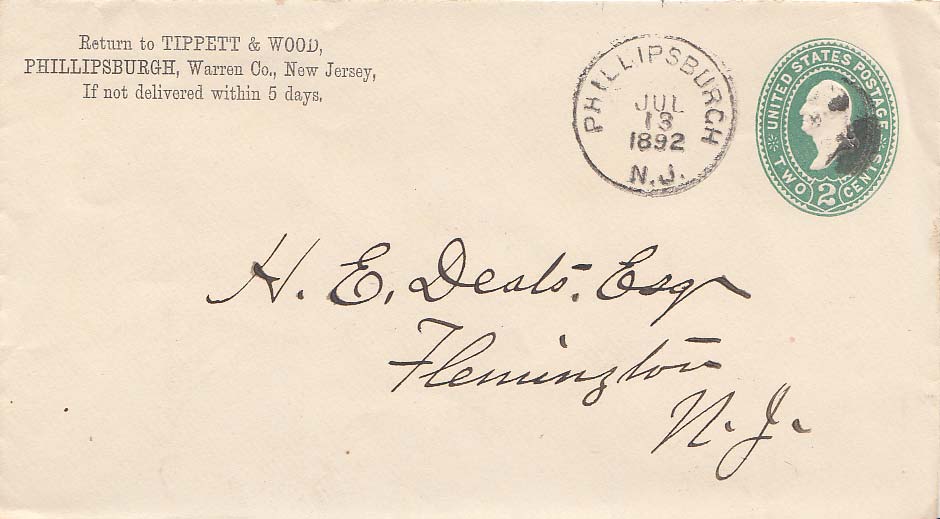 Return to TIPPETT & WOOD,
PHILLIPSBURGH, Warren Co., New Jersey,
If not delivered within 5 days.
PHILLIPSBURCH
JUL
13
1892
N.J.
UNITED STATES POSTAGE
TWO 2 CENTS
H. E. Deats. Esqr
Flemington
N. J.